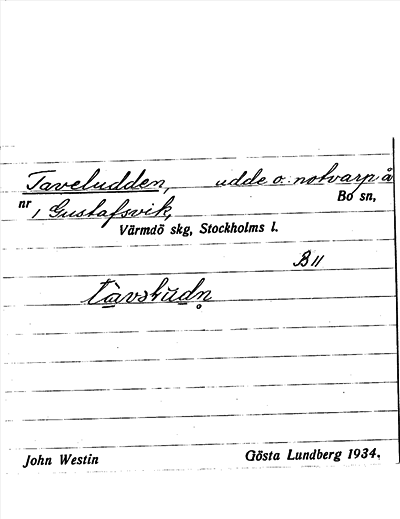 Taveludden, udde o. notvarp å
nr 1 Gustafsvik, Bo sn,
Värmdö skg, Stockholms l.
B 11
John Westin Gösta Lundberg 1934.